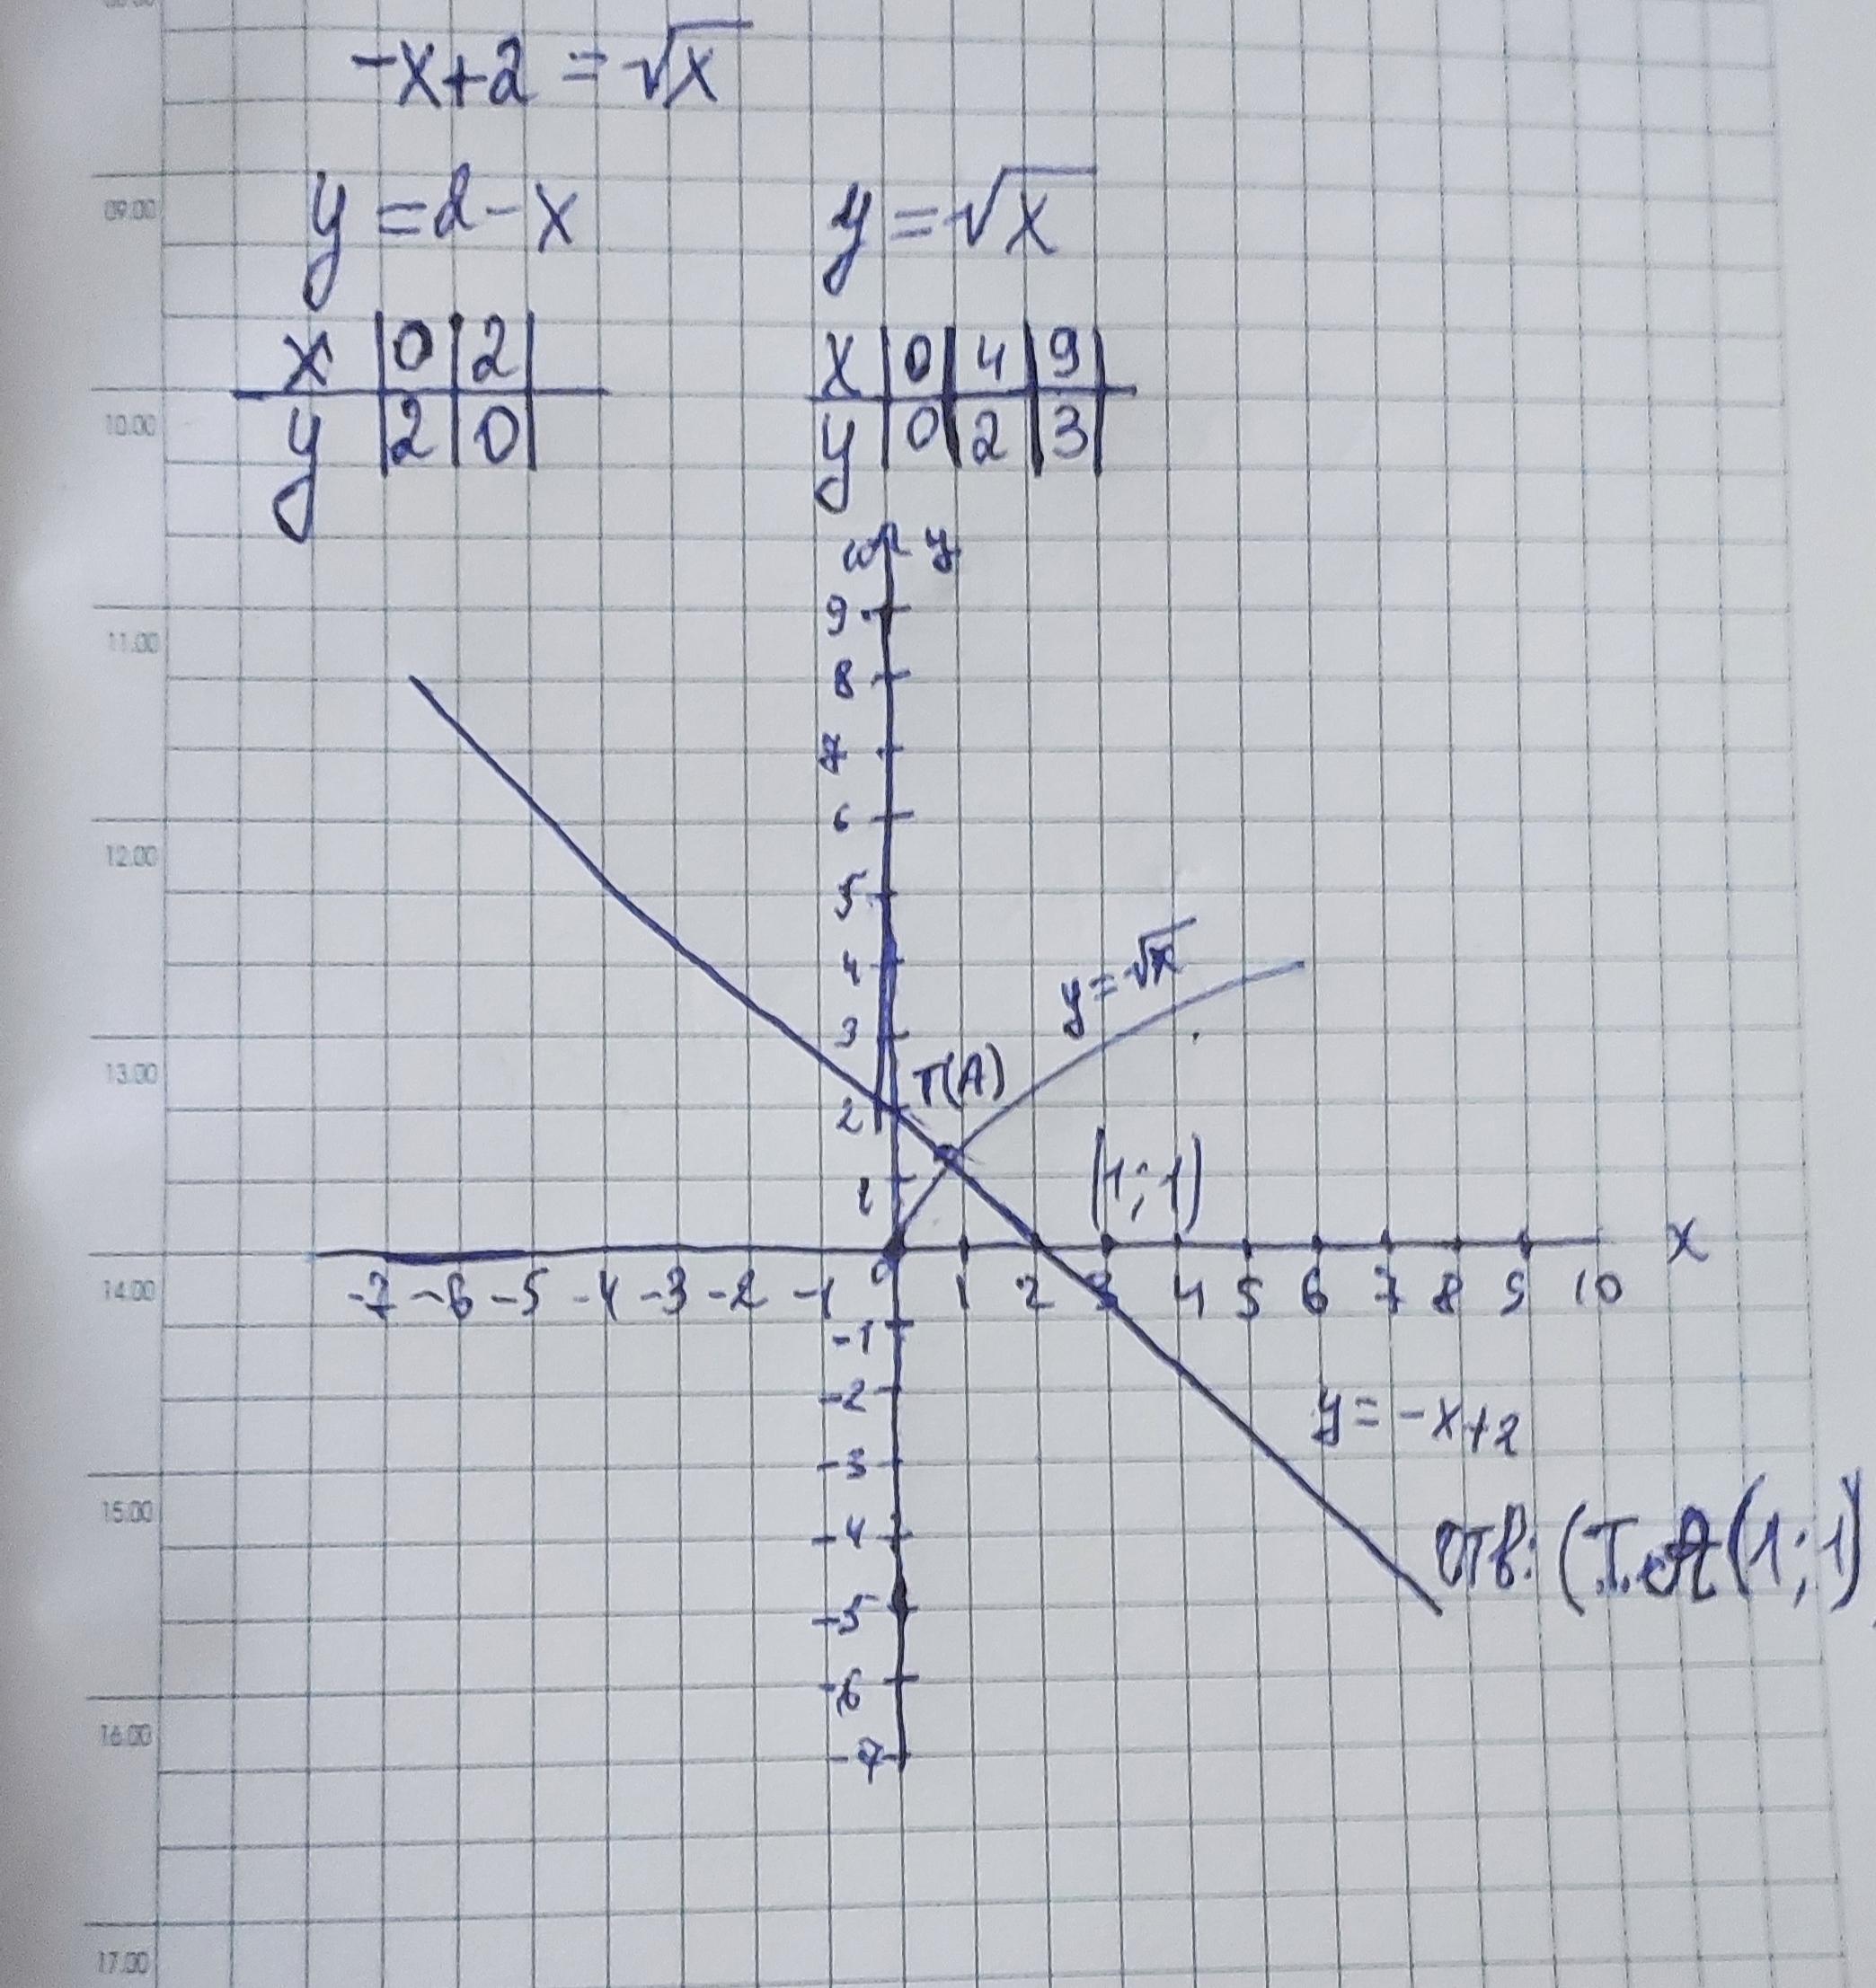 -x+2 = √x
09.00
y = 2-x y = √x
x | 0 | 2 | x | 0 | 4 | 9 |
y | 2 | 0 | y | 0 | 2 | 3 |
10.00
y
9
11.00
8
7
6
12.00
5
4
y = √x
3
13.00
T(A)
2
(1; 1)
1
x
-7 -6 -5 -4 -3 -2 -1 0 1 2 3 4 5 6 7 8 9 10
14.00
-1
-2
y = -x+2
-3
15.00
-4
отв: (т.A(1; 1)
-5
-6
16.00
-7
17.00